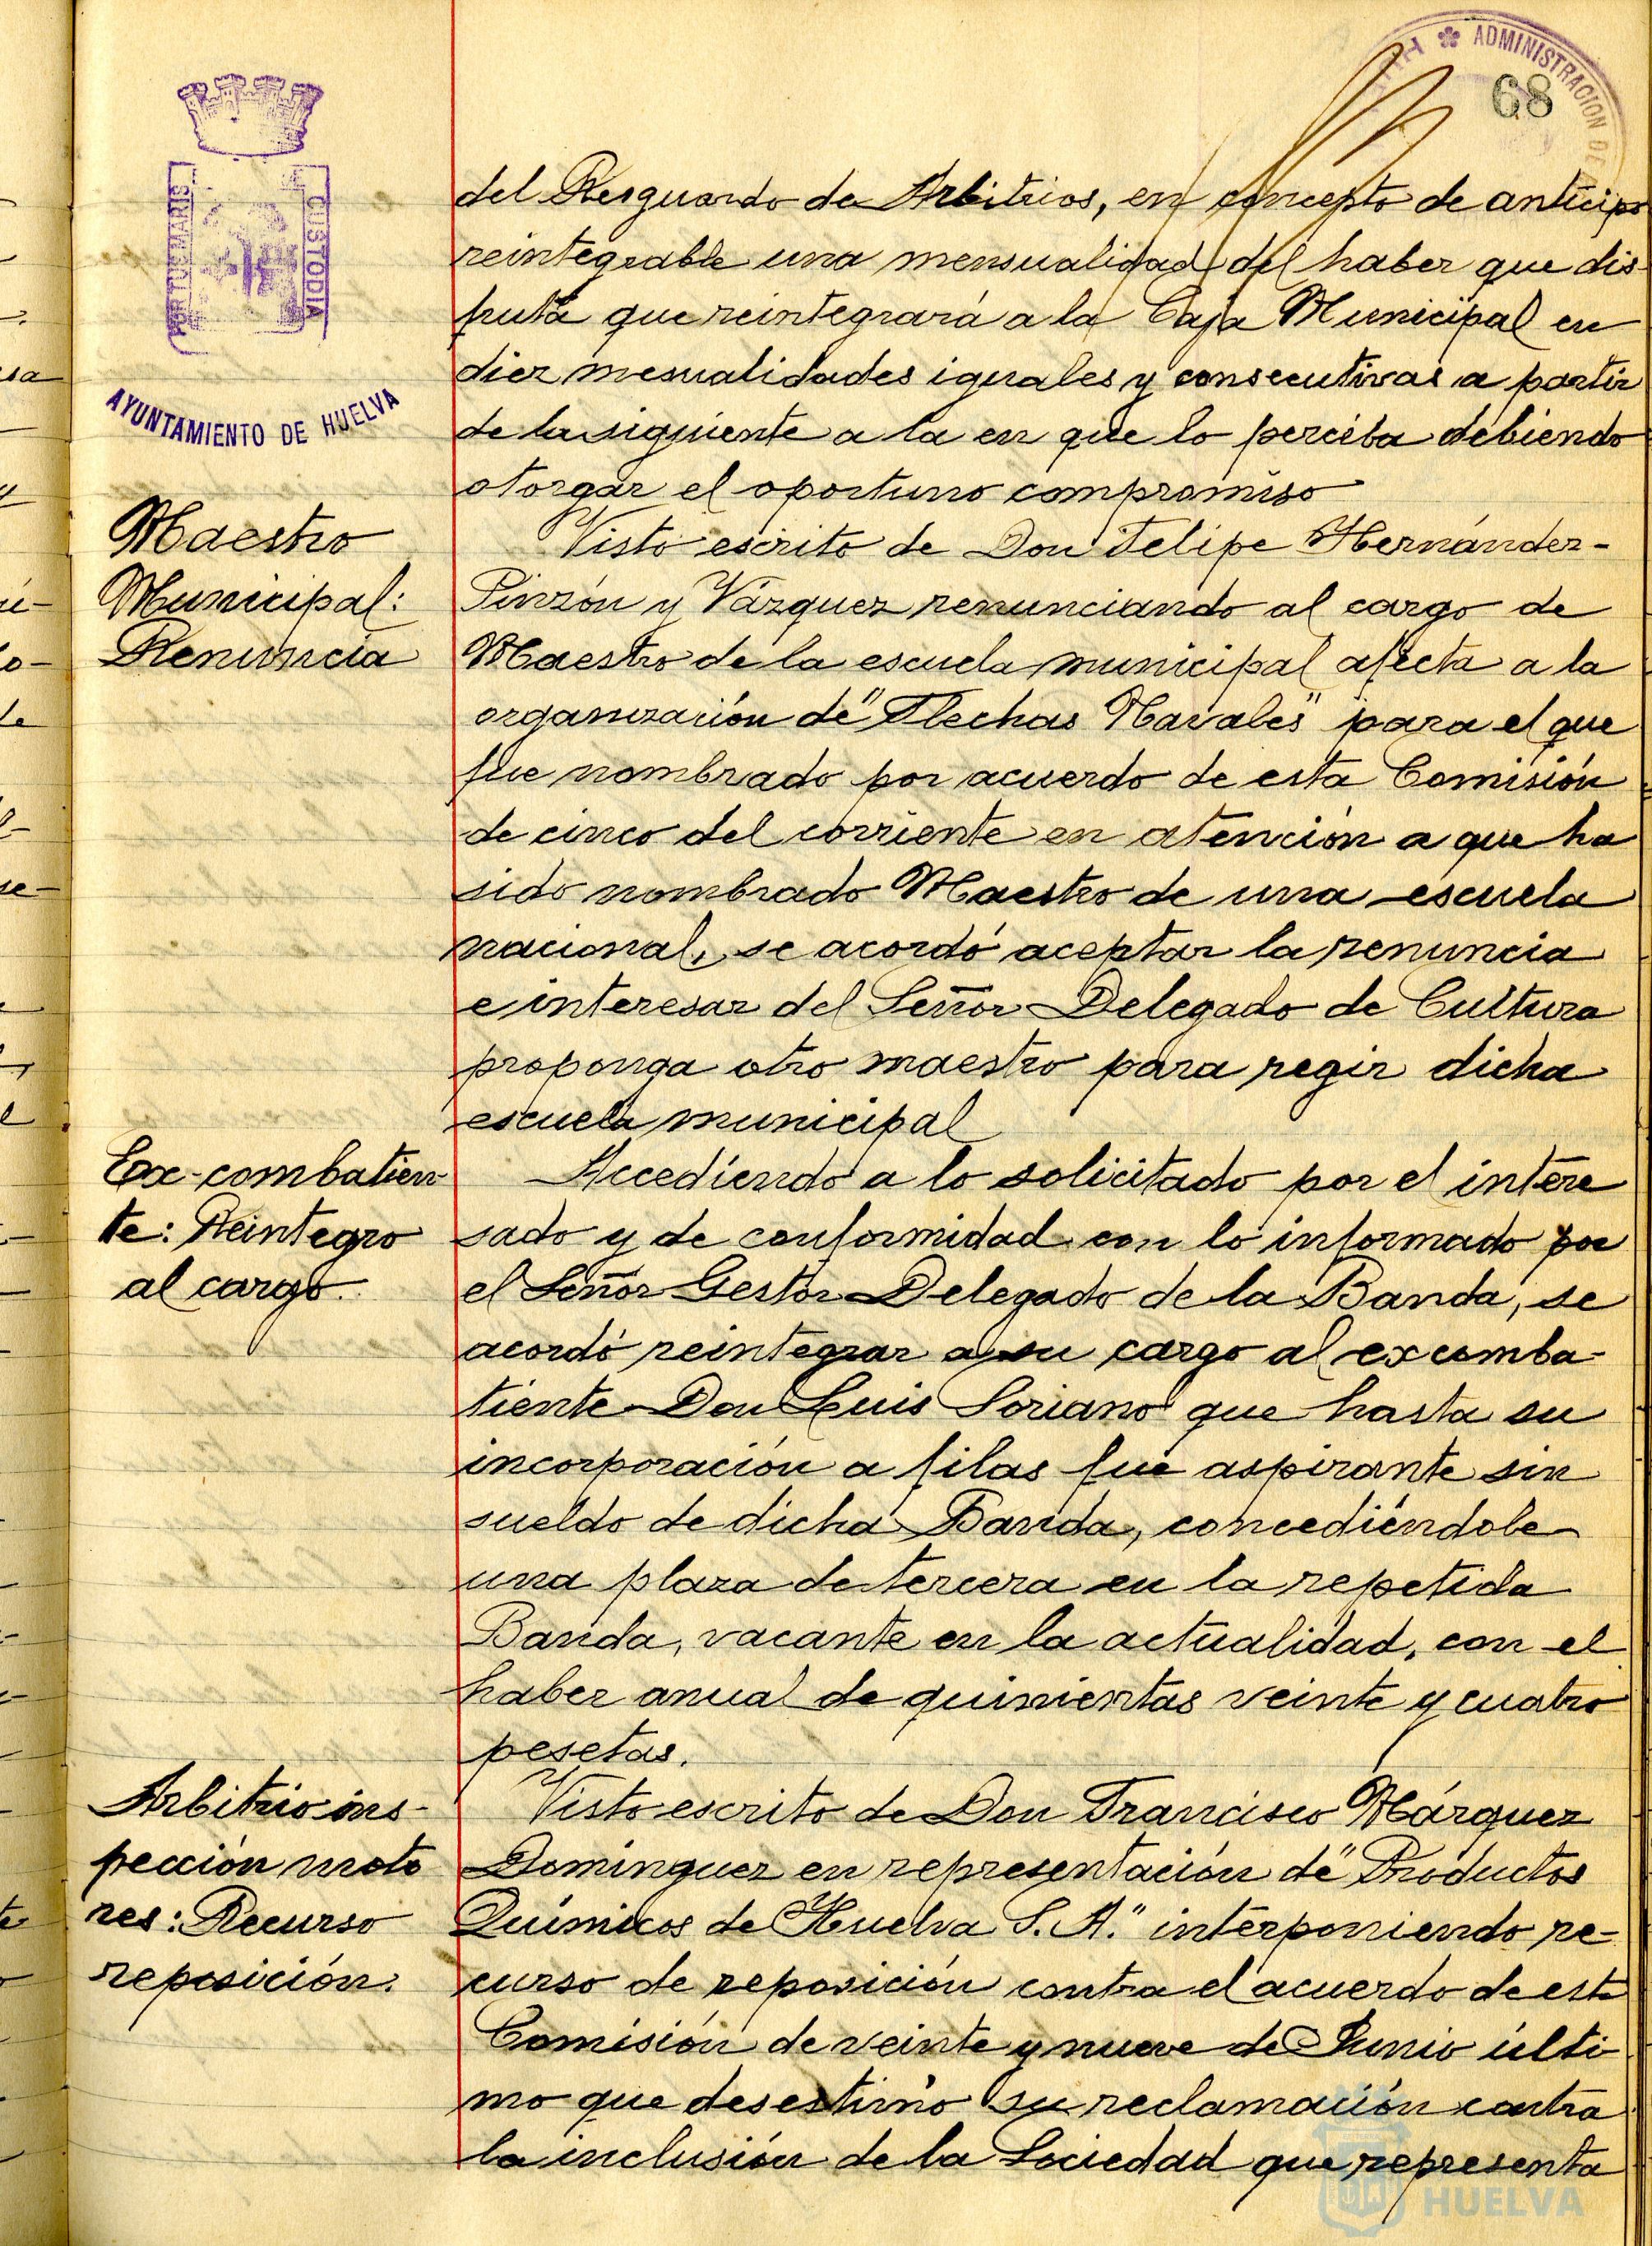 ADMINISTRACION DE
68
PORTUS MARIS
CUSTODIA
AYUNTAMIENTO DE HUELVA
del Resguardo de Arbitrios, en concepto de anticipo
reintegrable una mensualidad del haber que dis-
fruta que reintegrará a la Caja Municipal en
diez mesualidades iguales y consecutivas a partir
de la siguiente a la en que lo perciba debiendo
otorgar el oportuno compromiso
Maestro
Municipal:
Renuncia
Visto escrito de Don Felipe Hernández-
Pinzón y Vázquez renunciando al cargo de
Maestro de la escuela municipal afecta a la
organización de "Flechas Navales" para el que
fue nombrado por acuerdo de esta Comisión
de cinco del corriente en atención a que ha
sido nombrado Maestro de una escuela
nacional, se acordó aceptar la renuncia
e interesar del Señor Delegado de Cultura
proponga otro maestro para regir dicha
escuela municipal
Ex-combatien-
te: Reintegro
al cargo.
Accediendo a lo solicitado por el intere
sado y de conformidad con lo informado por
el Señor Gestor Delegado de la Banda, se
acordó reintegrar a su cargo al excomba-
tiente Don Luis Soriano que hasta su
incorporación a filas fué aspirante sin
sueldo de dicha Banda, concediéndole
una plaza de tercera en la repetida
Banda, vacante en la actualidad, con el
haber anual de quinientas veinte y cuatro
pesetas.
Arbitrio ins-
pección moto
res: Recurso
reposición.
Visto escrito de Don Francisco Márquez
Domínguez en representación de "Productos
Químicos de Huelva S.A." interponiendo re-
curso de reposición contra el acuerdo de esta
Comisión de veinte y nueve de Junio últi
mo que desestimó su reclamación contra
la inclusión de la Sociedad que representa
HUELVA